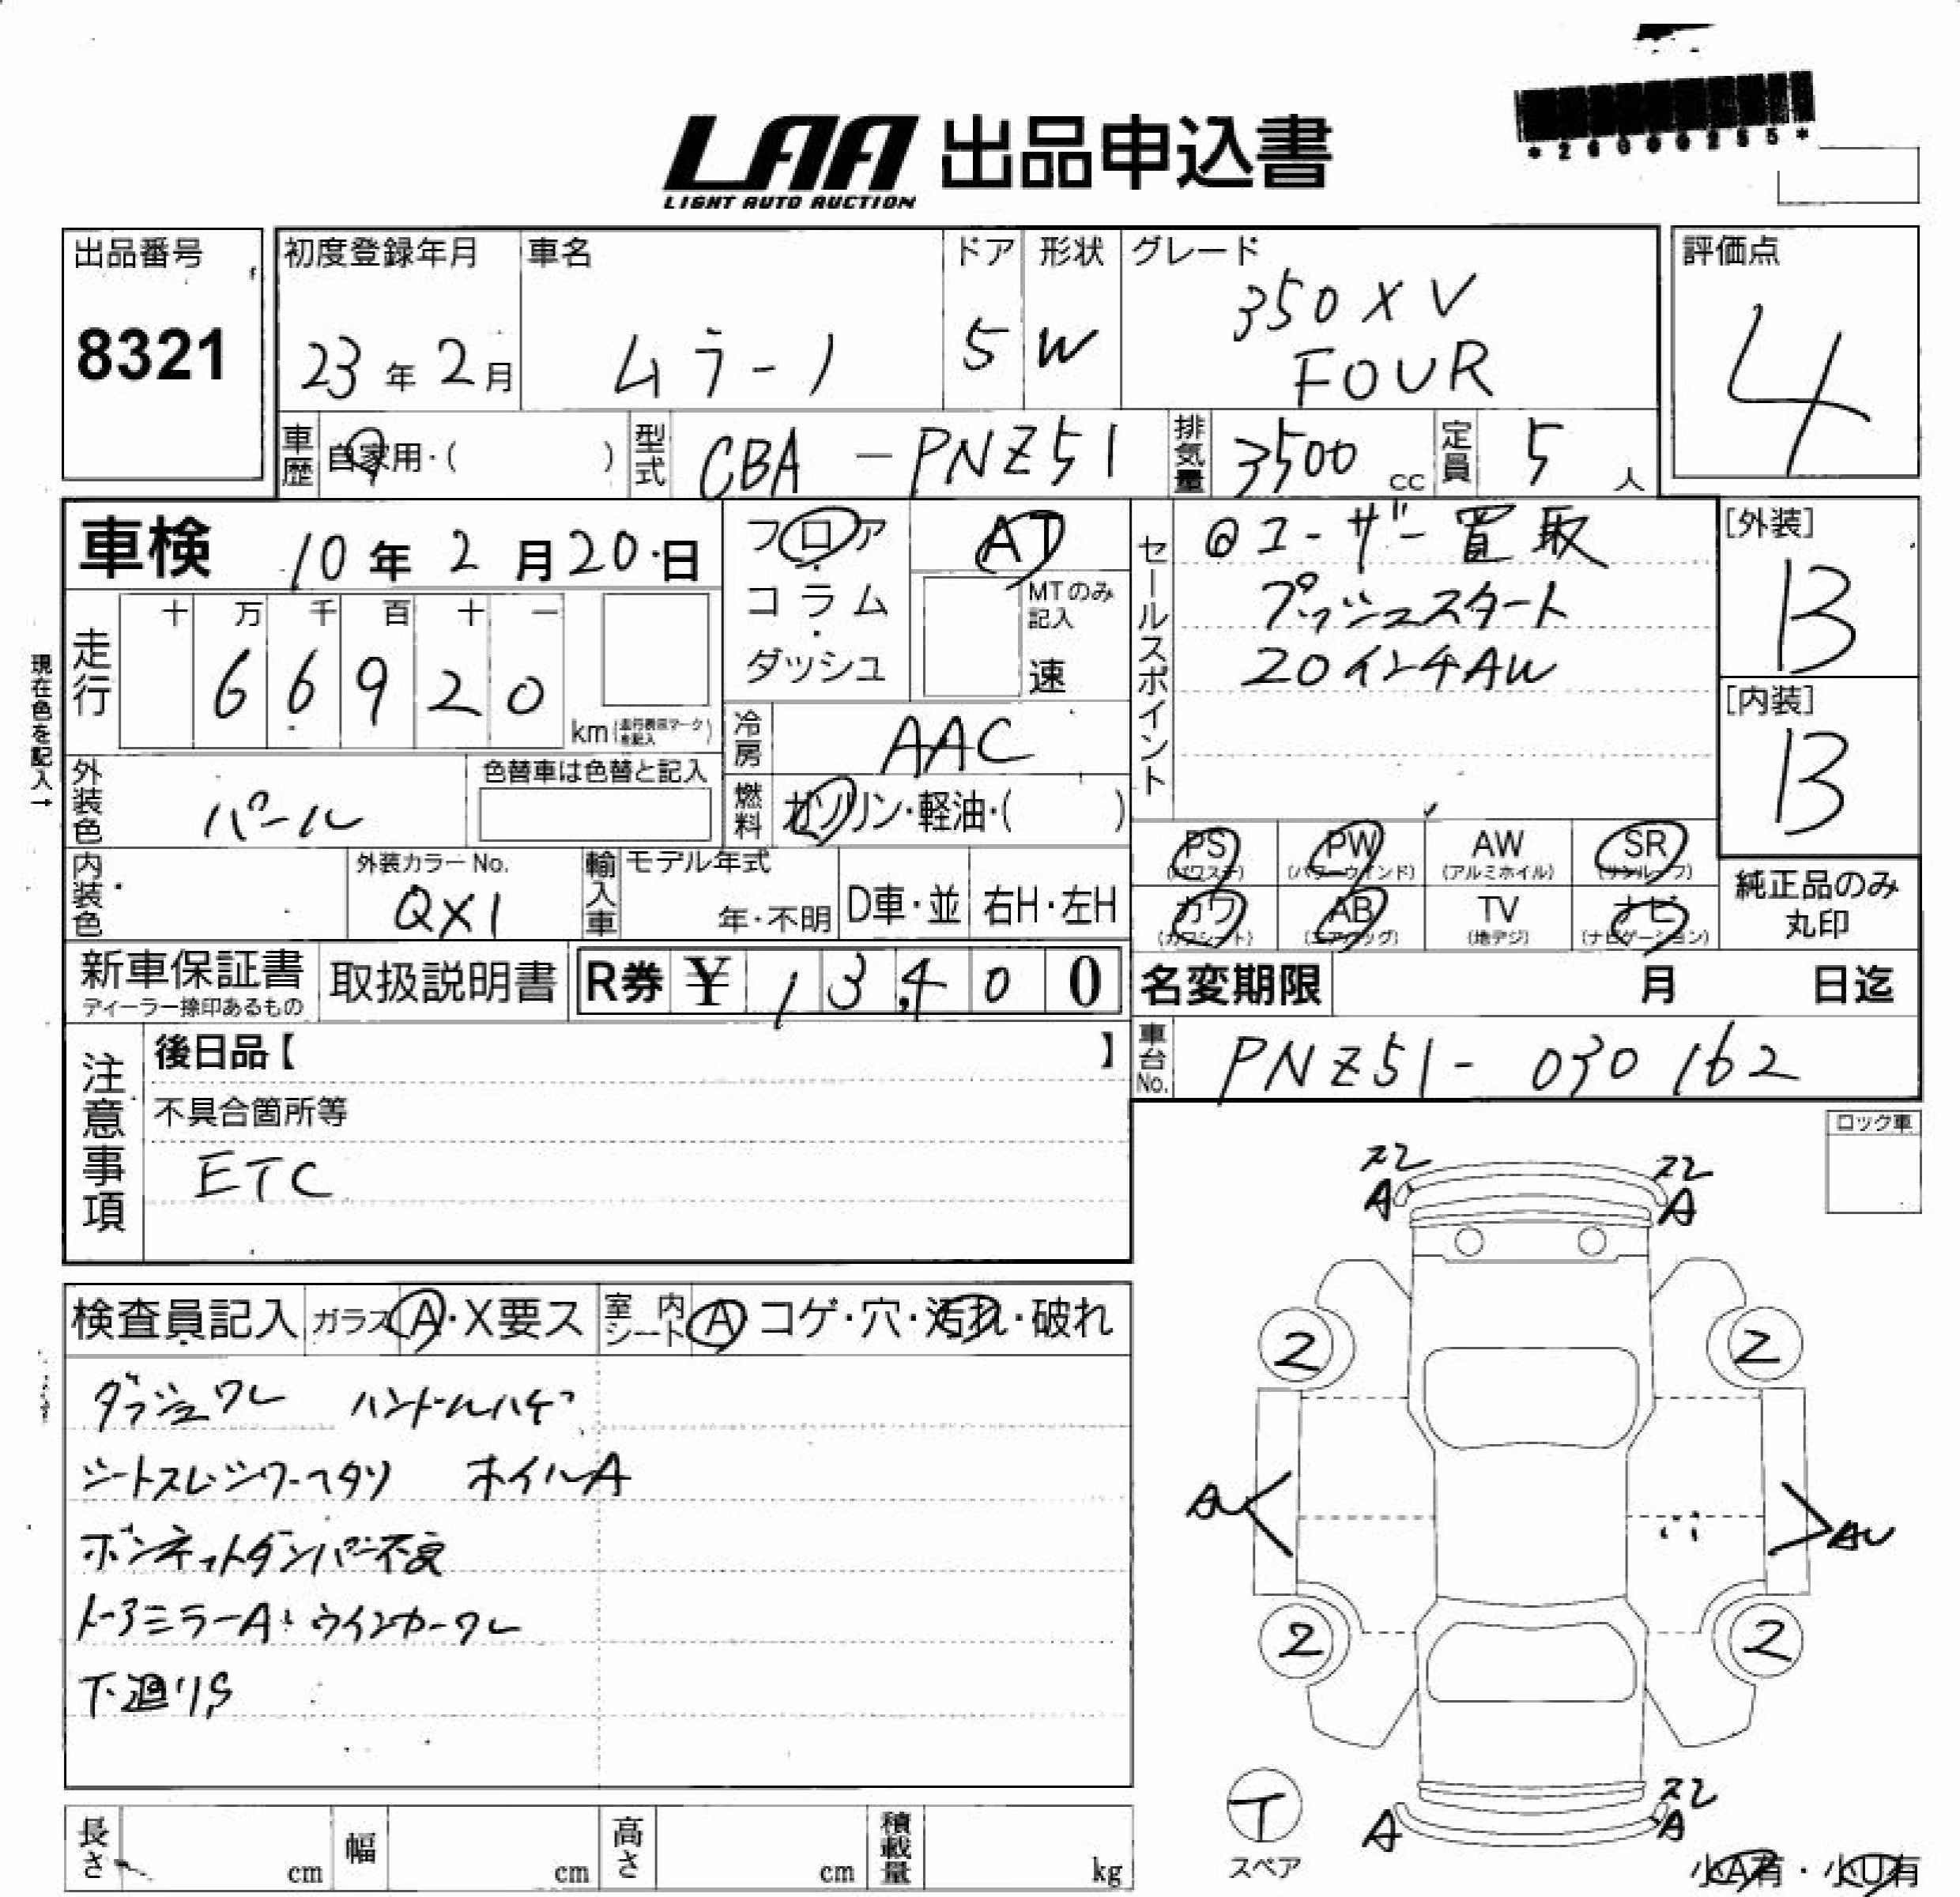 LAA 出品申込書
LIGHT AUTO AUCTION
出品番号
8321
初度登録年月
23年2月
車名
ムラーノ
ドア
5
形状
W
グレード
350XV
FOUR
評価点
4
車歴 自家用・( )
型式 CBA-PNZ51
排気量 3500 cc
定員 5 人
車検 10年2月20日
フロア
コラム
・
ダッシュ
AT
MTのみ
記入
速
セールスポイント
@ユーザー買取
プッシュスタート
20インチAW
[外装]
B
[内装]
B
現在色を記入→
走行
十 万 千 百 十 一
6 6 9 2 0
km(走行表示マークを記入)
冷房 AAC
燃料 ガソリン・軽油・( )
外装色 パール
色替車は色替と記入
内装色
外装カラーNo.
QX1
輸入車
モデル年式
年・不明
D車・並
右H・左H
PS PW AW SR
(パワステ) (パワーウインド) (アルミホイル) (サンルーフ)
カワ AB TV ナビ
(カワシート) (エアバッグ) (地デジ) (ナビゲーション)
純正品のみ
丸印
新車保証書
ディーラー捺印あるもの
取扱説明書
R券 ¥ 13,400
名変期限 月 日迄
車台No. PNZ51-030162
注意事項
後日品【 】
不具合箇所等
ETC
ロック車
スレ スレ
A A
検査員記入 ガラス A・X要ス 室内シート A コゲ・穴・汚れ・破れ
ダッシュワレ ハンドルハゲ
シートスレシワヘタリ ホイルA
ボンネットダンパー不良
ドアミラーA・ウインカーワレ
下廻りS
2 2
AU AU
2 2
スレ
A A
T
スペア
小A有・小U有
長さ cm 幅 cm 高さ cm 積載量 kg